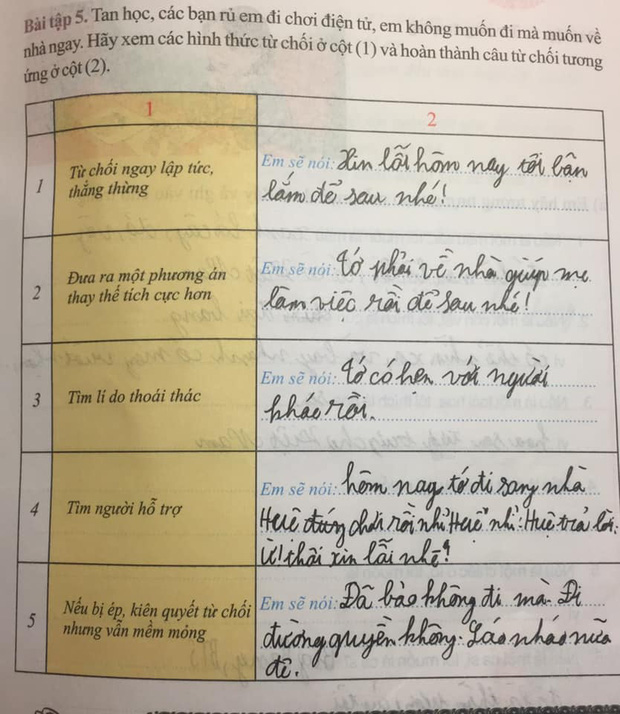 Bài tập 5. Tan học, các bạn rủ em đi chơi điện tử, em không muốn đi mà muốn về
nhà ngay. Hãy xem các hình thức từ chối ở cột (1) và hoàn thành câu từ chối tương
ứng ở cột (2).
1
2
1
Từ chối ngay lập tức,
thẳng thừng
Em sẽ nói: Xin lỗi hôm nay tôi bận
lắm để sau nhé!
2
Đưa ra một phương án
thay thế tích cực hơn
Em sẽ nói: tớ phải về nhà giúp mẹ
làm việc rồi để sau nhé!
3
Tìm lí do thoái thác
Em sẽ nói: Tớ có hẹn với người
khác rồi.
4
Tìm người hỗ trợ
Em sẽ nói: hôm nay tớ đi sang nhà
Huê đúng chơi rồi nhỉ Huê nhỉ. Huê trả lời:
Ừ! thôi xin lỗi nhé!
5
Nếu bị ép, kiên quyết từ chối
nhưng vẫn mềm mỏng
Em sẽ nói: Đã bảo không đi mà. Đi
đường quyền không. Láo nháo nữa
đê.